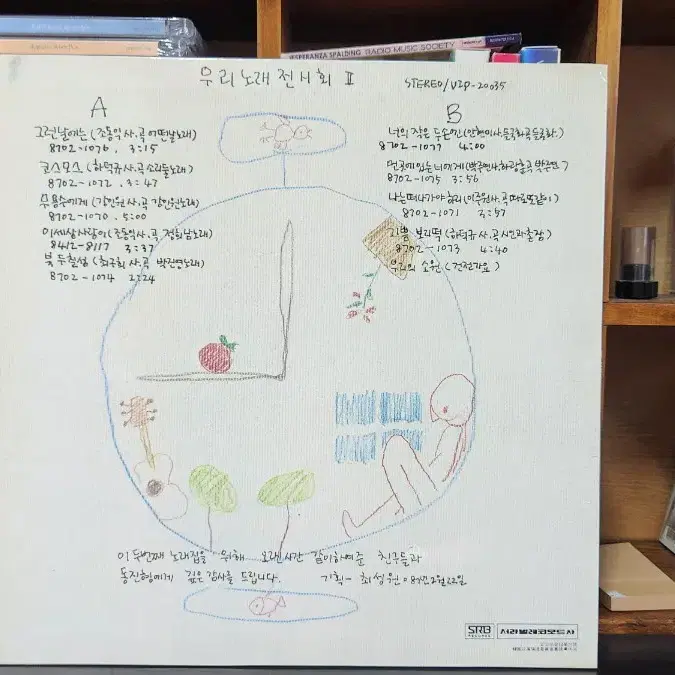 ESPERANZA SPALDING RADIO MUSIC SOCIETY
우리노래전시회 II
STEREO/VIP-20035
A
그런날에는 (조동익 사.곡 어떤날노래)
8702-1076. 3:15
코스모스 (하덕규 사.곡 소리들노래)
8702-1072. 3:47
무용수에게 (강인원 사.곡 강인원노래)
8702-1070. 5:00
이세상사랑이 (조동익 사.곡 정희남노래)
8412-8117 3:37
북두칠성 (최규희 사.곡 박진영노래)
8702-1074 2:24
B
너의 작은 두손엔
8702-1077 4:00
먼곳에있는너에게 (박주연사.하광훈곡 박주연)
8702-1075 3:56
나는떠나가야하리 (이주원사.곡 따로또같이)
8702-1071 3:57
기쁨 보리떡 (하덕규 사.곡 시인과촌장)
8702-1073 4:40
우리의 소원 (건전가요)
이 두번째 노래집을 위해 오랜시간 같이하여준 친구들과
동진형에게 깊은감사를 드립니다. 기획- 최성원 87년2월22일
SRB
RECORDS
서라벌레코드사